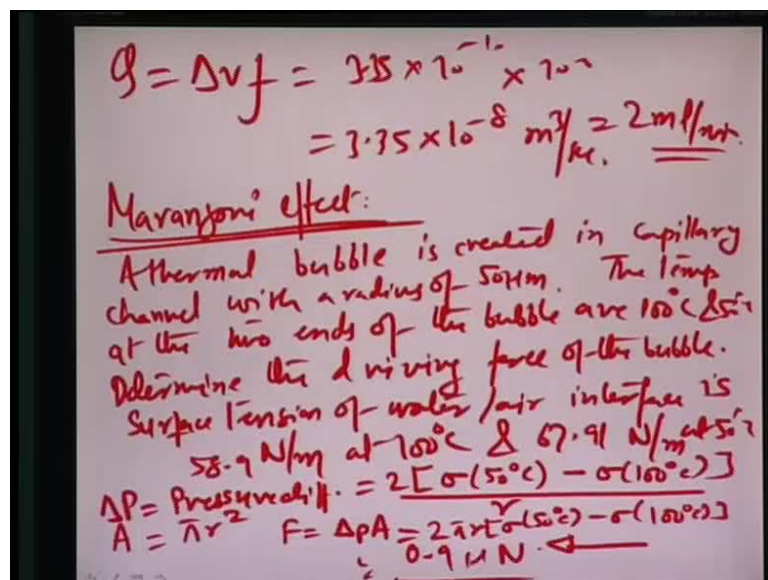 Q = Δvf = 3.35 × 10⁻¹⁰ × 100
= 3.35 × 10⁻⁸ m³/sec. = 2 ml/mt.
Maranjoni effect:
A thermal bubble is created in capillary
channel with a radius of 50 μm. The temp
at the two ends of the bubble are 100°C & 50°C
Determine the driving force of the bubble.
Surface tension of water/air interface is
58.9 N/m at 100°C & 67.91 N/m at 50°C
ΔP = Pressure diff. = 2[σ(50°C) − σ(100°C)] / r
A = πr² F = ΔpA = 2πr[σ(50°C) − σ(100°C)]
= 0.9 μN.